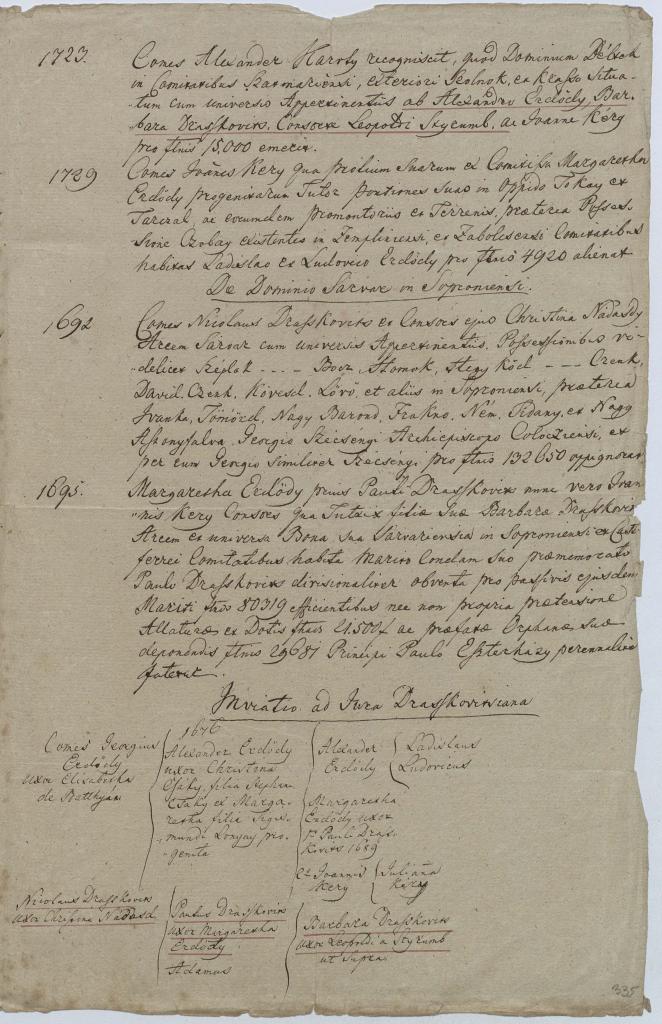 1723. Comes Alexander Karoly recogniscit, quod Dominium Béltek
in Comitatibus Szatmariensi, exteriori Szolnok, et Kraszn Situa-
tum cum universis Appertinentiis ab Alexandro Erdődy, Bar-
bara Drasskovits, Consorte Leopoldi Styrumb, ac Joanne Kery
pro flnis 15,000 emerit.
1729 Comes Joanes Kery qua prolium Suarum ex Comitissa Margaretha
Erdődy progenitarum Tutor portiones Suas in Oppido Tokay et
Tarczal, ac eorumdem promontoriis et Terrenis, præterea Posses-
sione Czobay existentes in Zempliniensi, et Zabolcsensi Comitatibus
habitas Ladislao et Ludovico Erdődy pro flnis 4920 alienat
De Dominio Sarvar in Soproniensi.
1692 Comes Nicolaus Drasskovits et Consors ejus Christina Nadasdy
Arcem Sárvár cum universis Appertinentiis, Possessionibus vi-
delicet Szeplak - - - - Booz, Homok, Hegy Köel - - - Czenk,
David. Czenk, Kövesd, Lövő, et aliis in Soproniensi, præterea
Ivanka, Tömörd, Nagy Barond, Frakno, Ném. Pidany, et Nagy
Asszonyfalva Georgio Szécsényi Archiepiscopo Coloczensi, et
per eum Georgio similiter Szecsényi pro flnis 132650 oppignorat
1695. Margaretha Erdődy prius Pauli Drasskovits nunc vero Joan-
nis Kery Consors qua Tutrix filiæ Suæ Barbaræ Drasskovits
Arcem et universa Bona sua Sárváriensia in Soproniensi et Castri
ferrei Comitatibus habita Marito Condam suo præmemorato
Paulo Drasskovits divisionaliter obventa pro passivis ejusdem
Mariti flnos 80319 efficientibus nec non propria prætensione
Allaturæ et Dotis flnos 21.500 ac præfatæ Orphanæ suæ
deponendis flnis 29681 Principi Paulo Eszterhazy perennaliter
fatetur.
Inviatio ad Jura Drasskovitsiana
Comes Georgius
Erdődy
uxor Elisabetha
de Batthyán
1676
Alexander Erdődy
uxor Christina
Csáky, filia Stephani
Csaky et Marga-
retha filia Sigis-
mundi Lonyay pro-
genita
Alexander
Erdődy
Ladislaus
Ludovicus
Margaretha
Erdődy uxor
1o Pauli Dras-
kovits 1689
2o Joannis
Kery
Julianna
Kery
Nicolaus Drasskovits
uxor Christina Nadasd
Paulus Drasskovits
uxor Margaretha
Erdődy
Adamus
Barbara Drasskovits
uxor Leopoldi a Styrumb
ut Supra
335